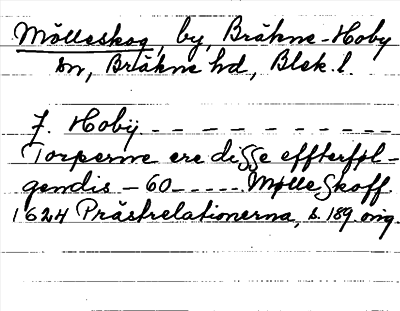 Mölleskog, by, Bräkne-Hoby
sn, Bräkne hd, Blek. l.
J. Hobÿ - - - - - - - - - -
Torperne ere disse effterføl-
gendis - 60 - - - - - Mølle Skoff
1624 Prästrelationerna, s. 189. orig.